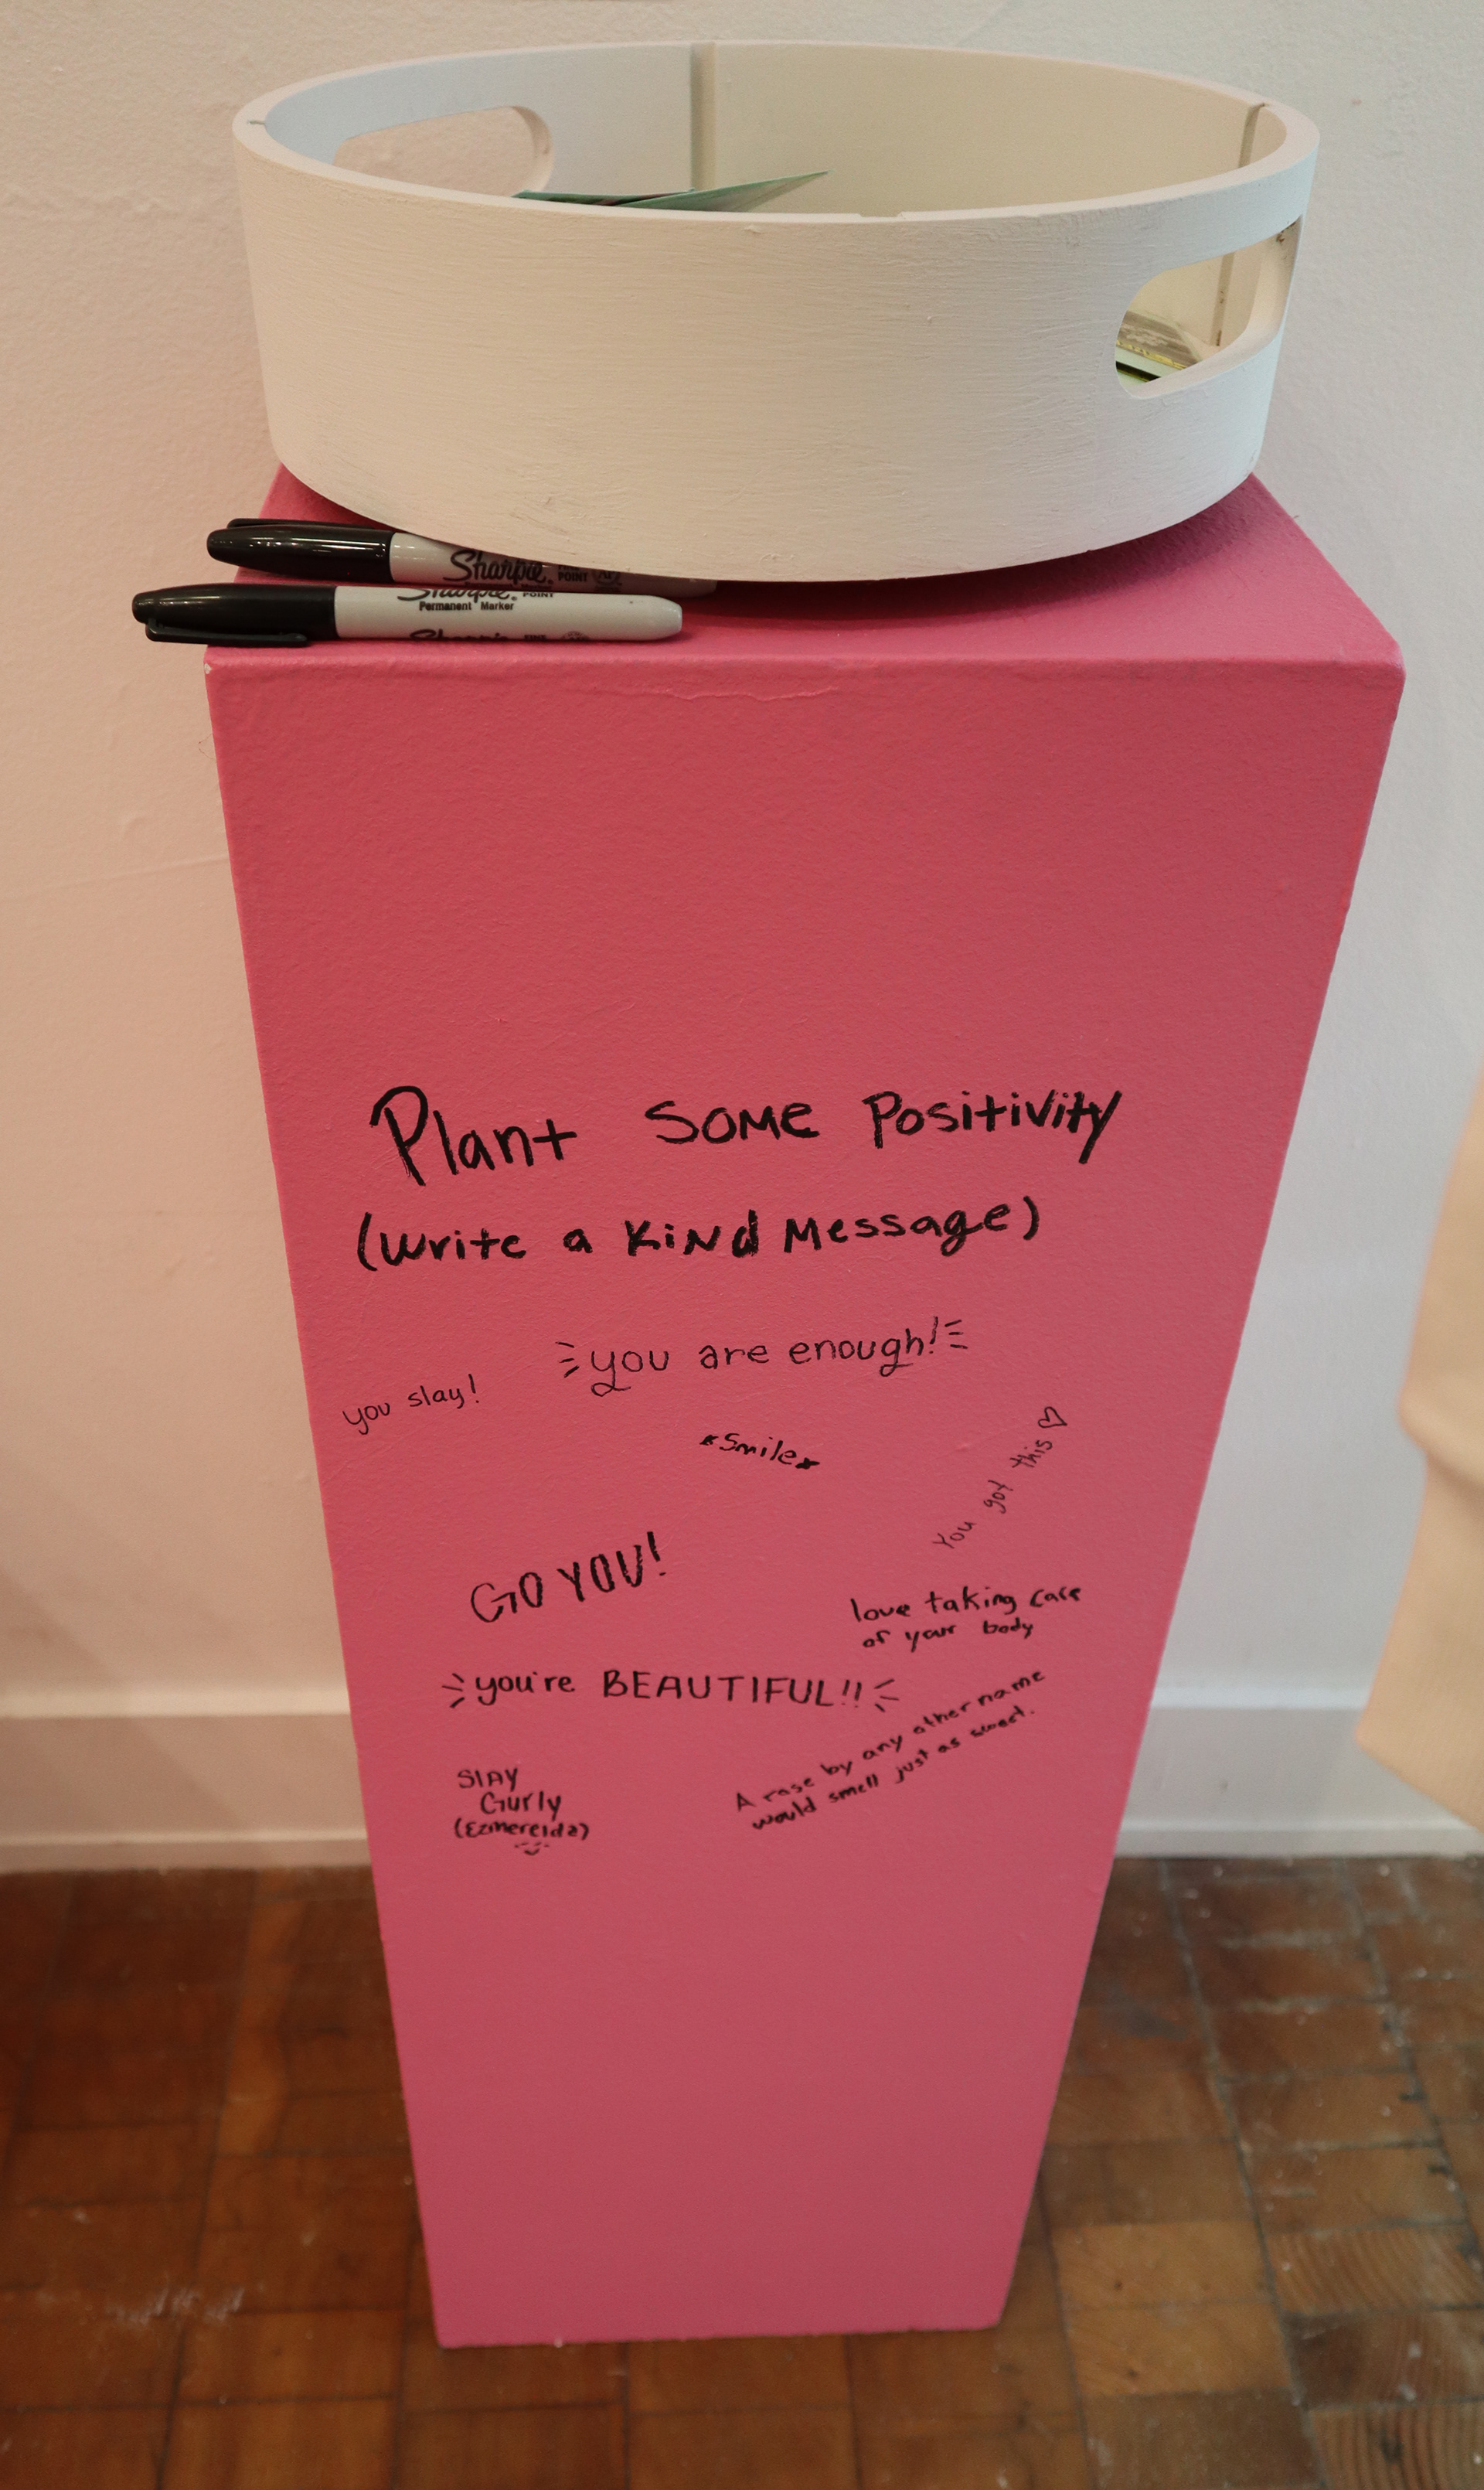 Sharpie. FINE POINT
Sharpie. POINT
Permanent Marker
Sharpie FINE
Plant Some Positivity
(Write a Kind Message)
you are enough!
you slay!
Smile
You got this ♡
GO YOU!
love taking care
of your body
you're BEAUTIFUL!!
A rose by any other name
would smell just as sweet.
SlAY
Gurly
(Ezmerelda)